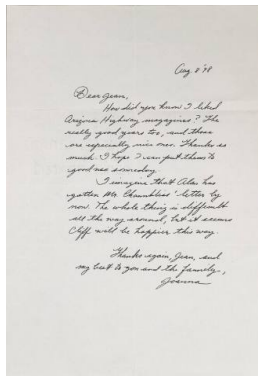 Aug. 8 '98
Dear Jean,
How did you know I liked
Arizona Highway magazines? The
really good years too, and these
are especially nice ones. Thanks so
much. I hope I can put them to
good use someday.
I imagine that Alex has
gotten Mr. Chambliss' letter by
now. The whole thing is difficult
all the way around, but it seems
Cliff will be happier this way.
Thanks again, Jean, and
my best to you and the family,
Joanna